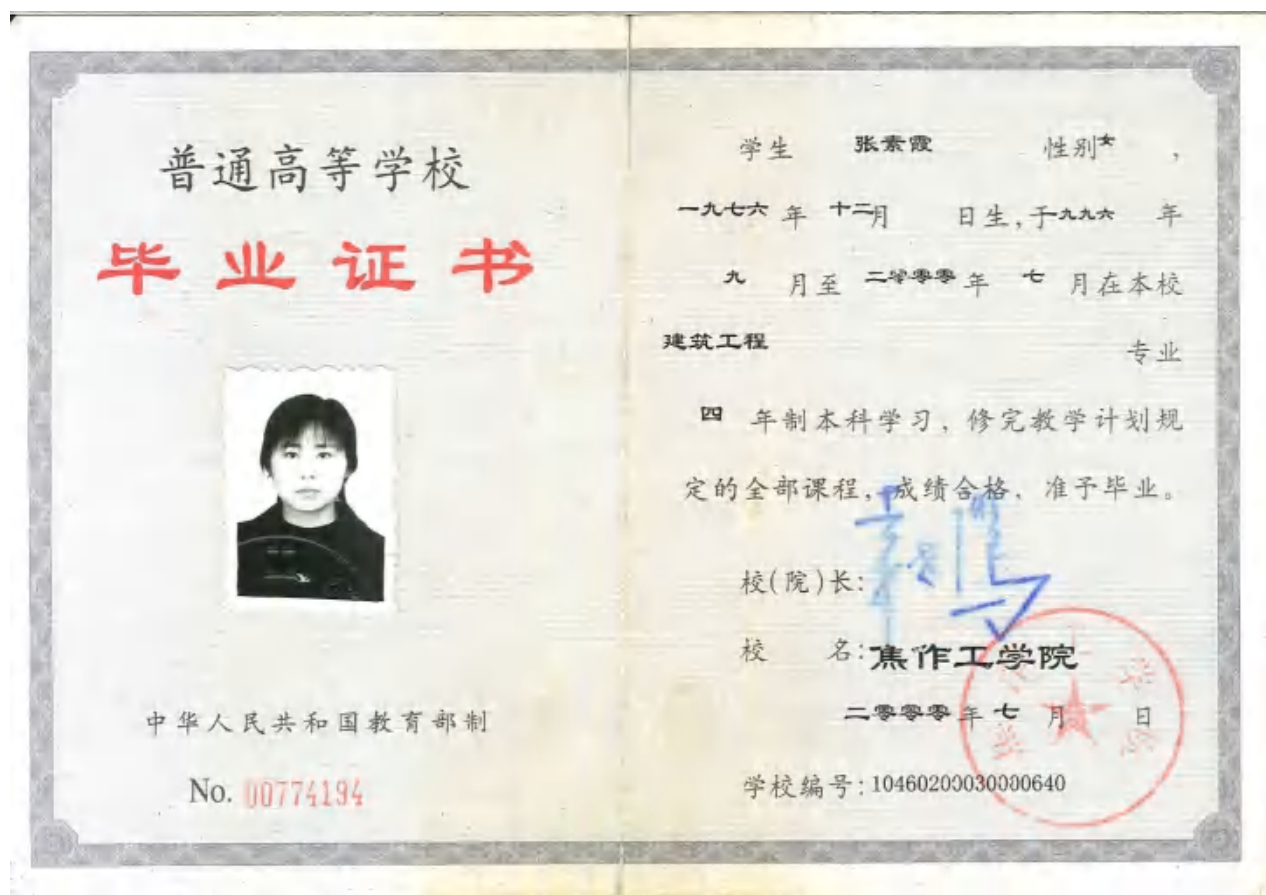 普通高等学校
毕业证书
中华人民共和国教育部制
No. 00774194
学生 张素霞 性别 女 ,
一九七六 年 十二月 日生,于 九九六 年
九 月至 二零零零 年 七 月在本校
建筑工程 专业
四 年制本科学习、修完教学计划规
定的全部课程,成绩合格、准予毕业。
校(院)长:
校 名: 焦作工学院
二零零零 年 七 月 日
学校编号: 104602000300